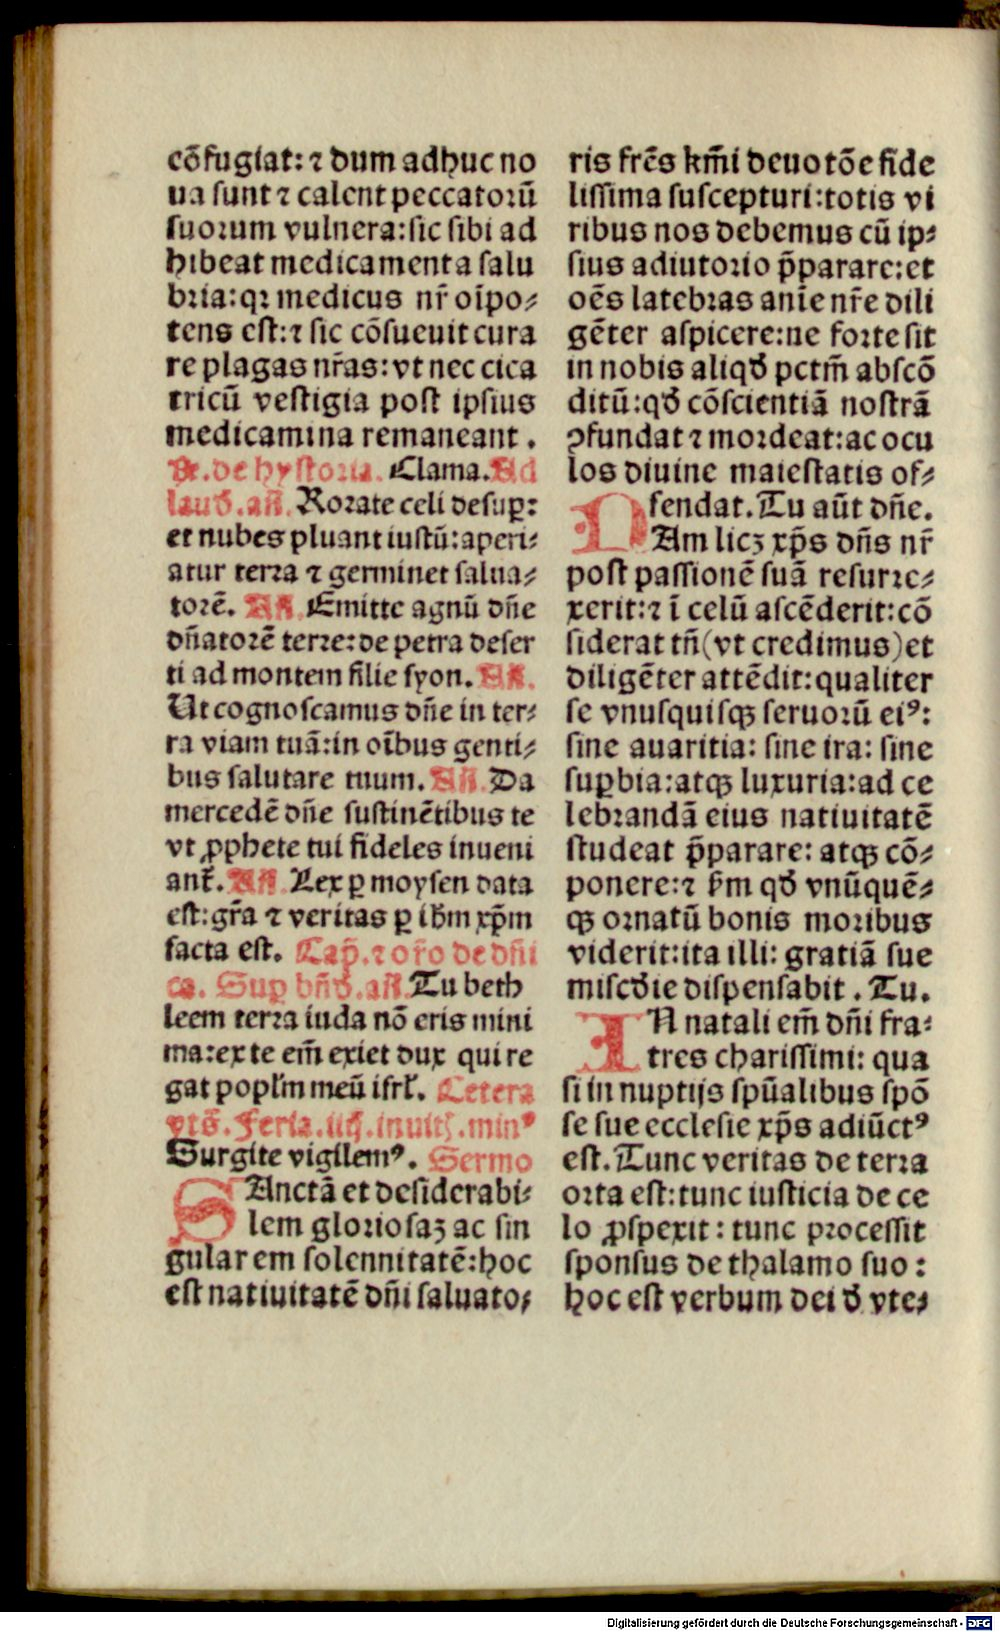 cōfugiat: ⁊ dum adhuc no
ua sunt ⁊ calent peccatoꝝū
suorum vulnera: sic sibi ad
hibeat medicamenta salu
bria: qꝛ medicus nr̄ oīpo⸗
tens est: ⁊ sic cōsueuit cura
re plagas nr̄as: vt nec cica
tricū vestigia post ipsius
medicamina remaneant .
℟. de hystoria. Clama. Ad
laud̄. añ. Rorate celi desuꝑ:
et nubes pluant iustū: aperi⸗
atur terra ⁊ germinet salua⸗
torē. Añ. Emitte agnū dñe
dñatorē terre: de petra deser
ti ad montem filie syon. Añ.
Ut cognoscamus dñe in ter⸗
ra viam tuā: in oībus genti⸗
bus salutare tuum. Añ. Da
mercedē dñe sustinētibus te
vt ꝓphete tui fideles inueni
ant̄. Añ. Lex ꝑ moysen data
est: gr̄a ⁊ veritas ꝑ ihm̄ xp̄m
facta est. Cap̄. ⁊ or̄o de dñi
ca. Suꝑ bñd̄. añ. Tu beth
leem terra iuda nō eris mini
ma: ex te em̄ exiet dux qui re
gat popl̄m meū isrl̄. Cetera
vts̄. Feria. iiij. inuit̄. minꝰ
Surgite vigilemꝰ. Sermo
SAnctā et desiderabi⸗
lem gloriosaꝫ ac sin
gularem solennitatē: hoc
est natiuitatē dñi saluato⸗
ris fr̄es km̄i deuotōe fide
lissima suscepturi: totis vi
ribus nos debemus cū ip⸗
sius adiutorio p̄parare: et
oēs latebras anīe nr̄e dili
gēter aspicere: ne forte sit
in nobis aliqd̄ pctm̄ abscō
ditū: qd̄ cōscientiā nostrā
ꝯfundat ⁊ mordeat: ac ocu
los diuine maiestatis of⸗
fendat. Tu aūt dñe.
NAm licꝫ xp̄s dñs nr̄
post passionē suā resurre⸗
xerit: ⁊ ī celū ascēderit: cō
siderat tñ (vt credimus) et
diligēter attēdit: qualiter
se vnusquisqꝫ seruorū eiꝰ:
sine auaritia: sine ira: sine
suꝑbia: atqꝫ luxuria: ad ce
lebrandā eius natiuitatē
studeat p̄parare: atqꝫ cō⸗
ponere: ⁊ km̄ qd̄ vnūquē⸗
qꝫ ornatū bonis moribus
viderit: ita illi: gratiā sue
miscd̄ie dispensabit . Tu.
IN natali em̄ dñi fra⸗
tres charissimi: qua
si in nuptijs spūalibus spō
se sue ecclesie xp̄s adiūctꝰ
est. Tunc veritas de terra
orta est: tunc iusticia de ce
lo ꝓspexit: tunc processit
sponsus de thalamo suo:
hoc est verbum dei d̄ vte⸗
Digitalisierung gefördert durch die Deutsche Forschungsgemeinschaft - DFG